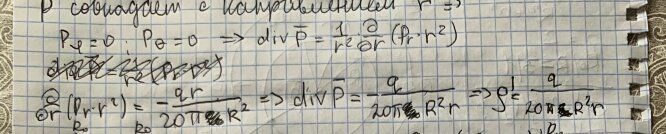 P совпадает с направлением r ⇒
P_φ = 0, P_θ = 0 ⇒ div P̄ = 1/r² ∂/∂r (P_r · r²)
∂/∂r (P_r · r²) = -qr/20π R² ⇒ div P̄ = -q/20π R² r ⇒ ρ' = q/20π R² r